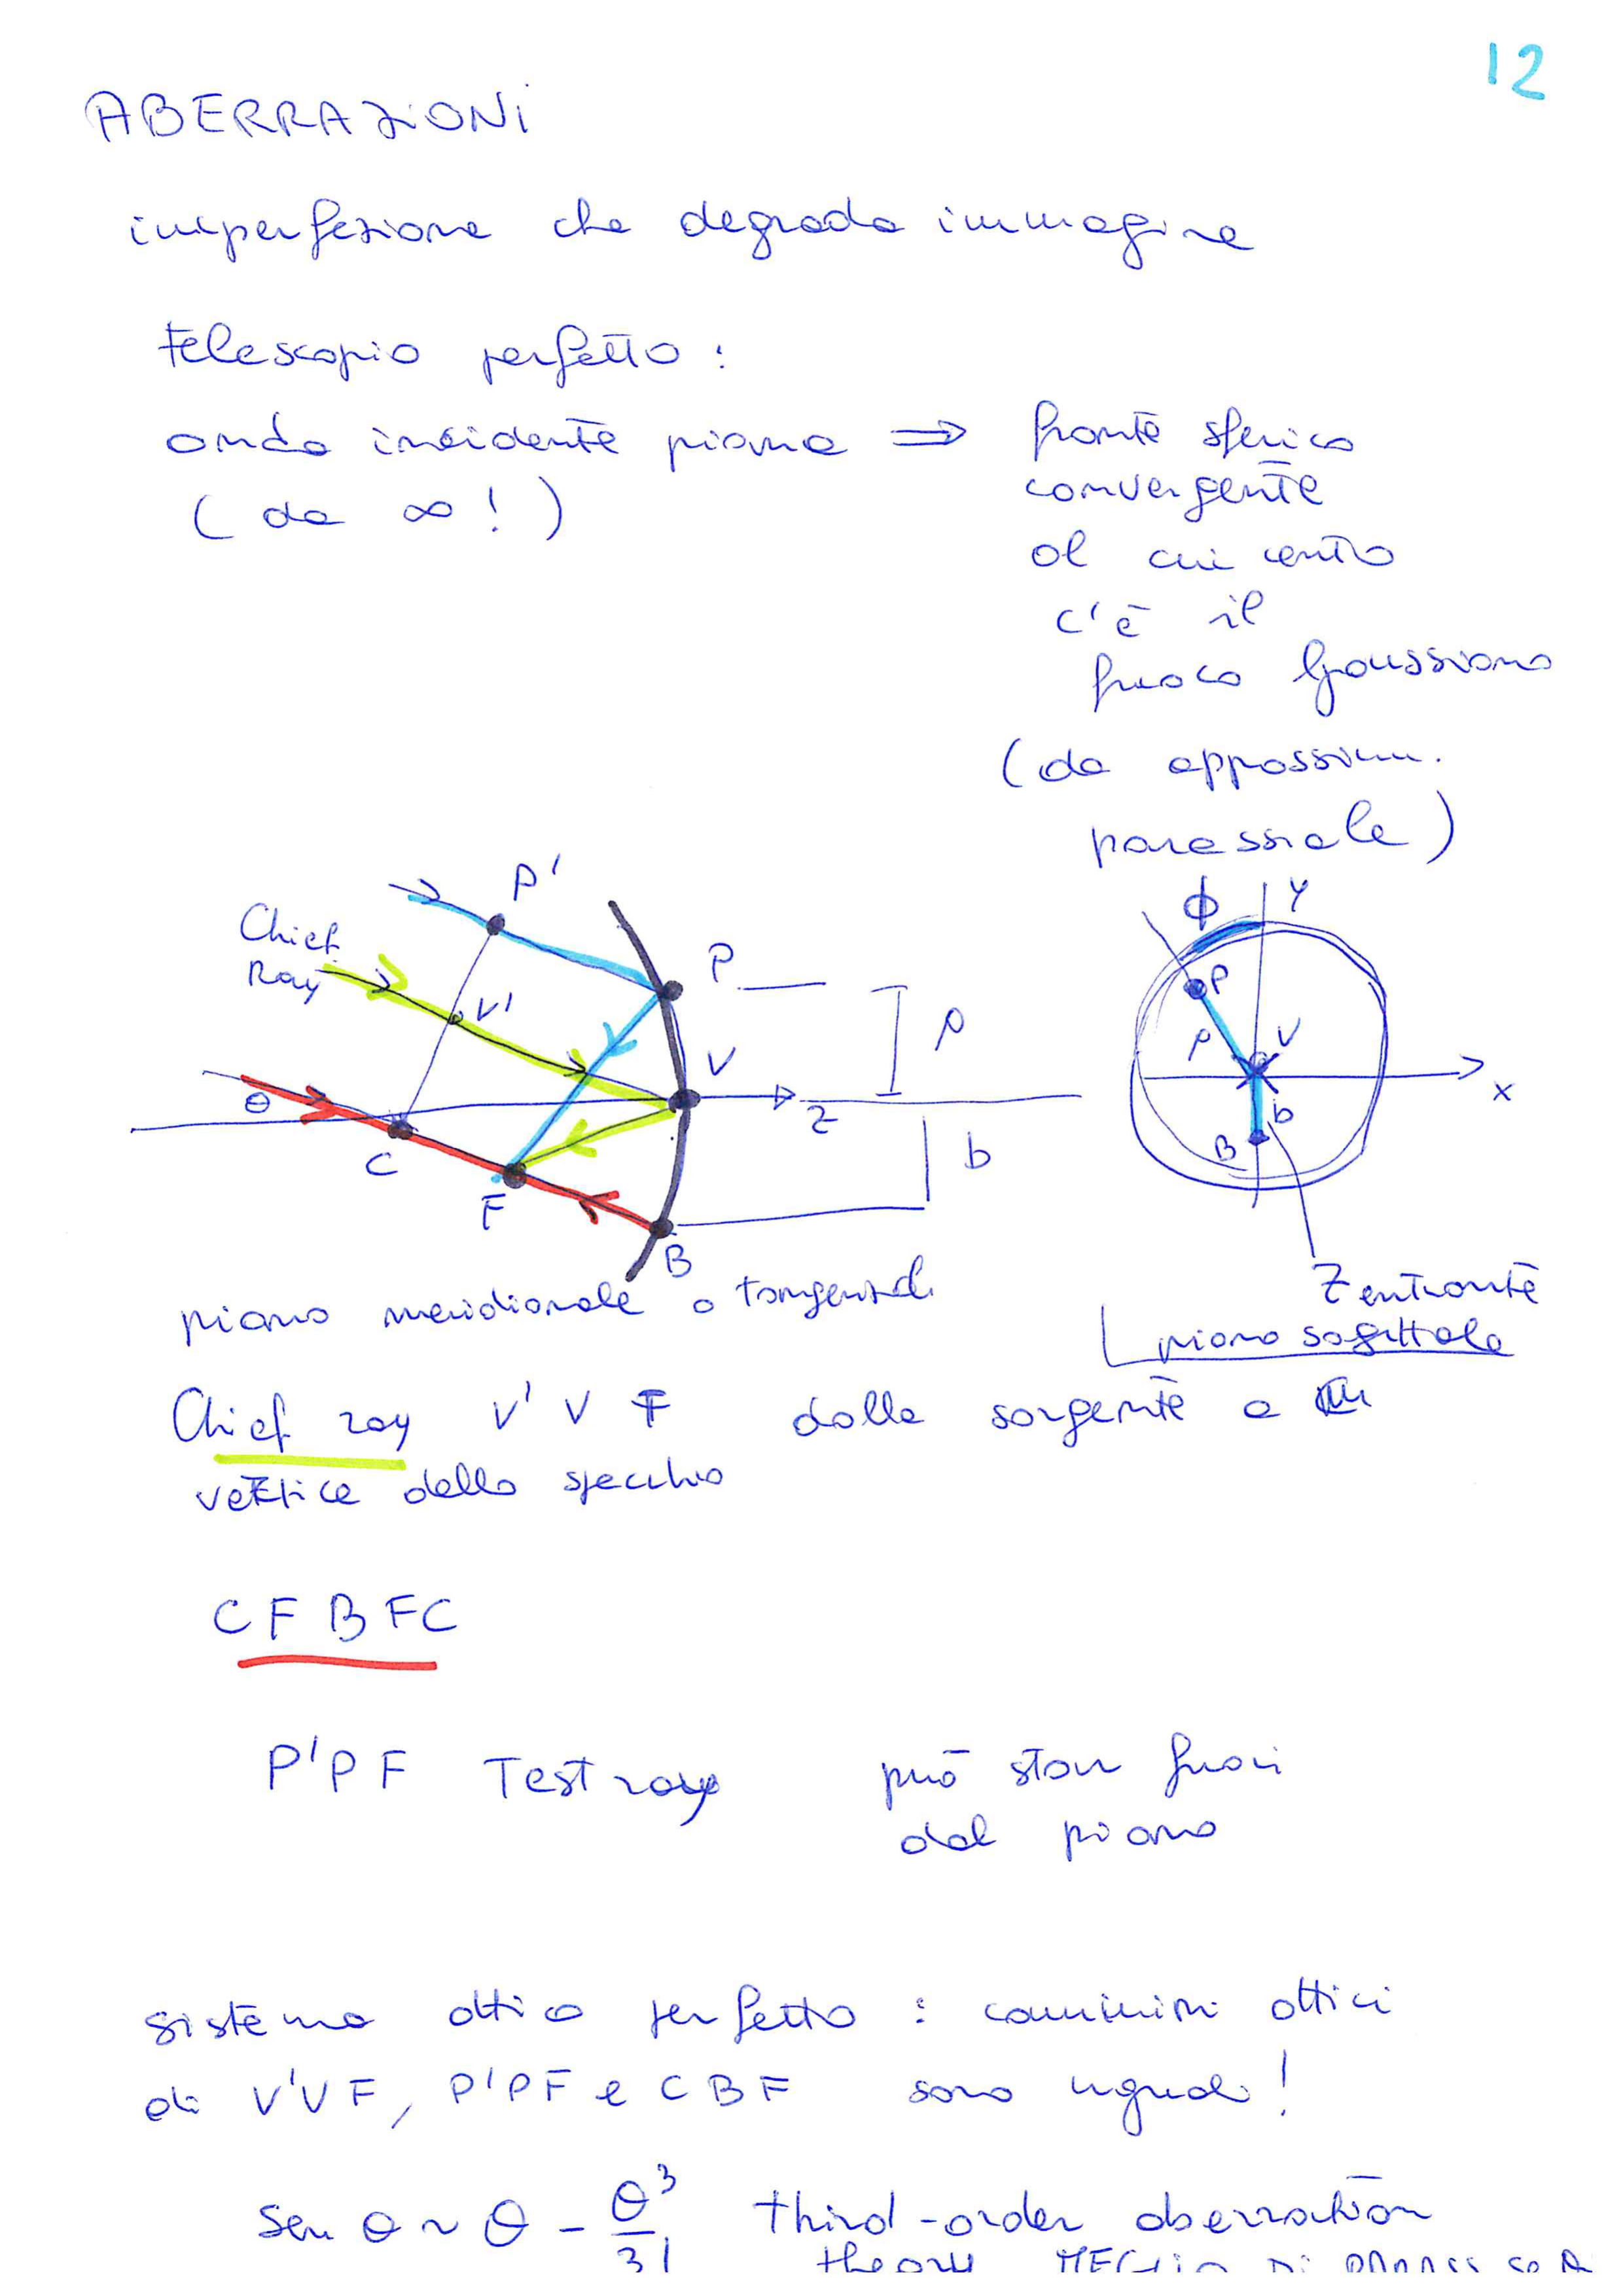 12
ABERRAZIONI
imperfezione che degrada immagine
Telescopio perfetto :
onda incidente piana ⇒ fronte sferico
(da ∞ !) convergente
al cui centro
c'è il
fuoco Gaussiano
(da approssim.
parassiale)
P'
Chief
Ray
V'
P
V
ρ
θ
z
C
F
B
b
ϕ
y
P
ρ
V
x
b
B
z entrante
piano sagittale
piano meridionale o tangenziale
Chief ray V' V F dalla sorgente a
vertice dello specchio
C F B F C
P'P F Test ray può star fuori
dal piano
sistema ottico perfetto : cammini ottici
di V'V F, P'P F e C B F sono uguali !
sen θ ~ θ - θ³/3! third-order aberration
theory MEGLIO DI